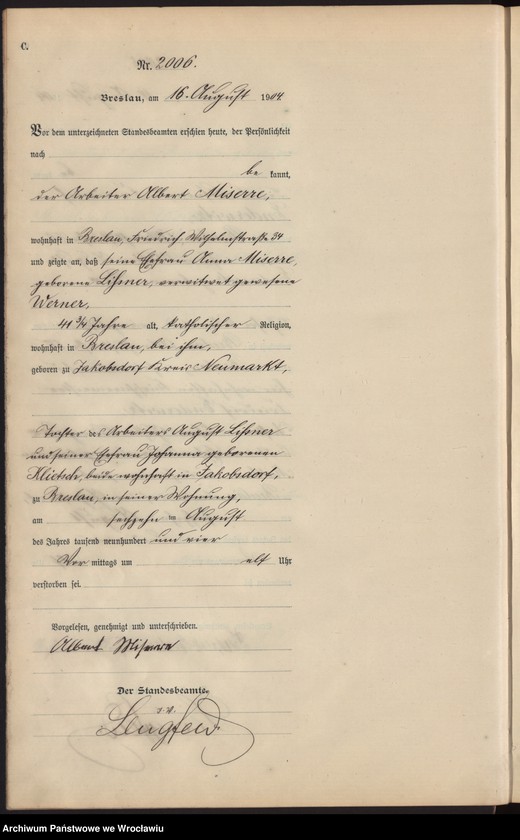 C.
Nr. 2006.
Breslau, am 16. August 1904.
Vor dem unterzeichneten Standesbeamten erschien heute, der Persönlichkeit
nach
be kannt,
der Arbeiter Albert Miserre,
wohnhaft in Breslau, Friedrich Wilhelmstraße 34
und zeigte an, daß seine Ehefrau Anna Miserre,
geborene verwitwet gewesene
Werner,
41 3/4 Jahre alt, katholischer Religion,
wohnhaft in Breslau, bei ihm,
geboren zu Jakobsdorf Kreis Neumarkt,
Tochter des Arbeiters August
und seiner Ehefrau Johanna geborenen
beide wohnhaft in Jakobsdorf,
zu Breslau, in seiner Wohnung,
am sechzehn ten August
des Jahres tausend neunhundert und vier
Vor mittags um elf Uhr
verstorben sei.
Vorgelesen, genehmigt und unterschrieben.
Albert Miserre
Der Standesbeamte.
I. V.
Archiwum Państwowe we Wrocławiu